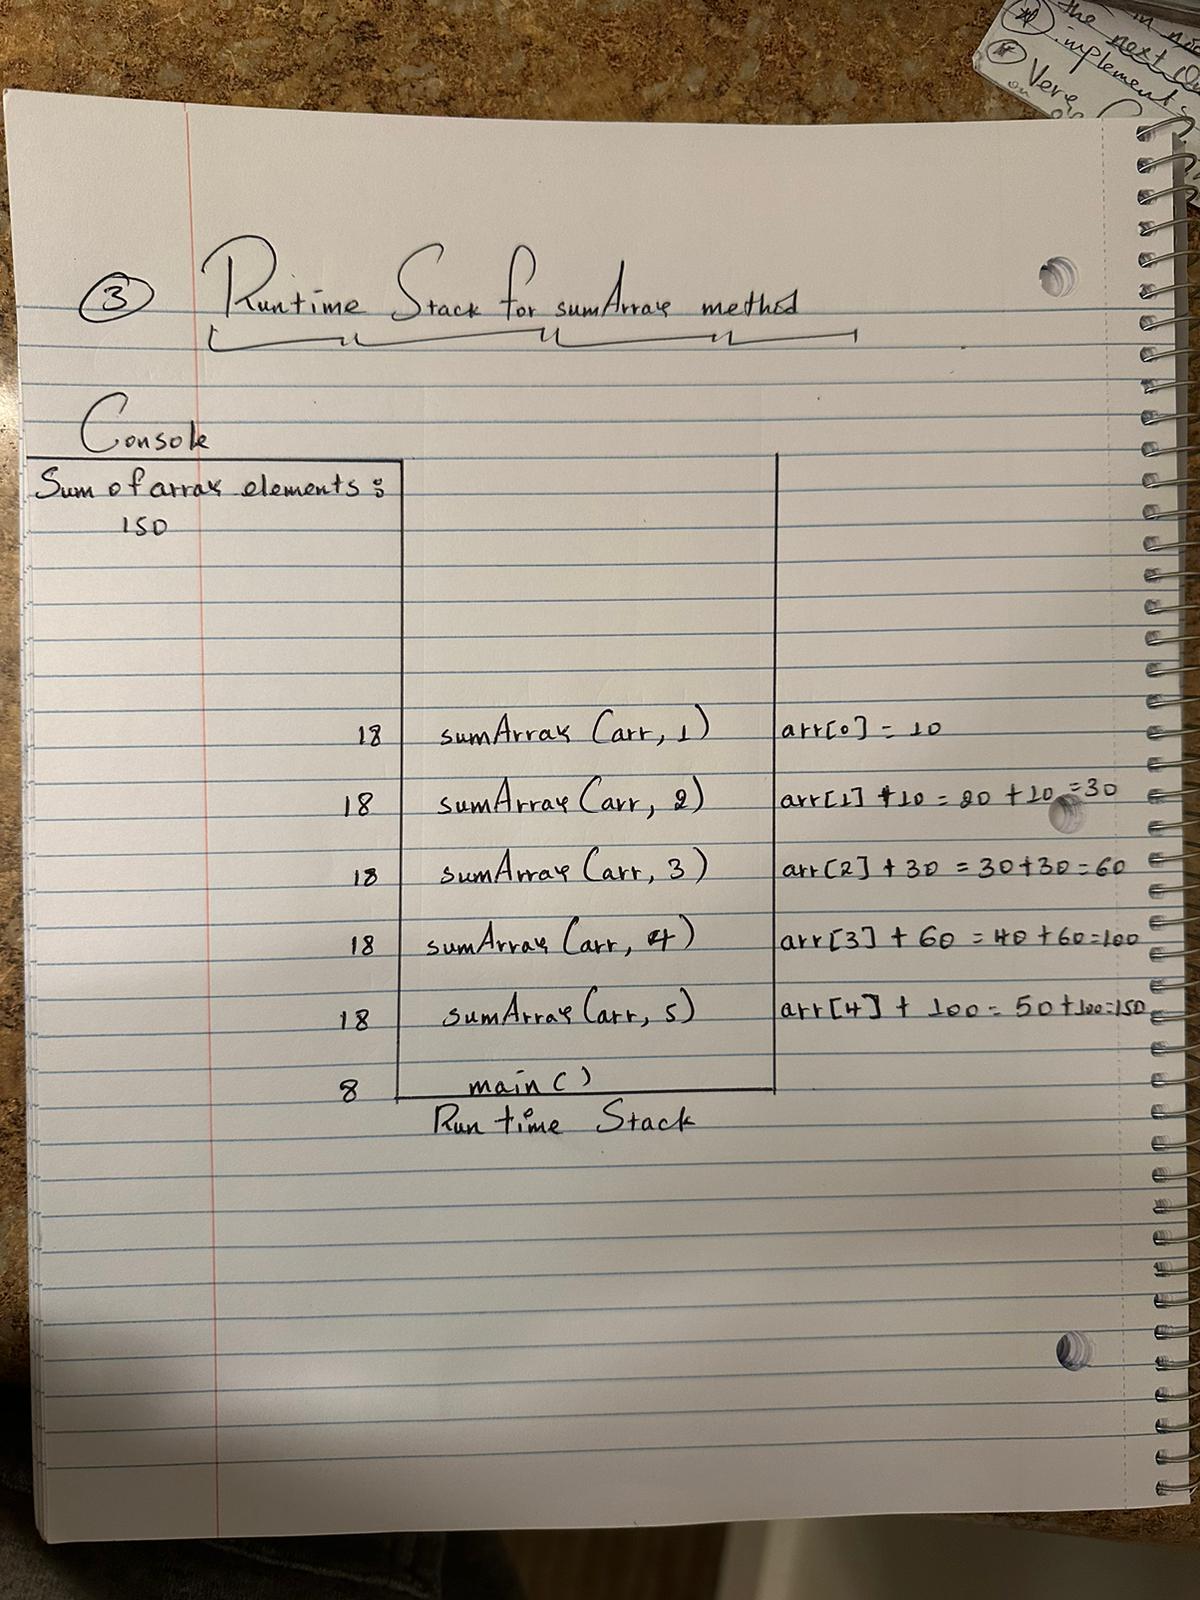 in no
the next Qu
implement
Very
on
3 Runtime Stack for sumArray method
Console
Sum of array elements :
150
18 sumArray (arr, 1) arr[0] = 10
18 sumArray (arr, 2) arr[1] +10 = 20 +10 =30
18 sumArray (arr, 3) arr[2] +30 = 30+30 = 60
18 sumArray (arr, 4) arr[3] + 60 = 40 +60=100
18 sumArray (arr, 5) arr[4] + 100 = 50 +100=150
8 main ( )
Run time Stack